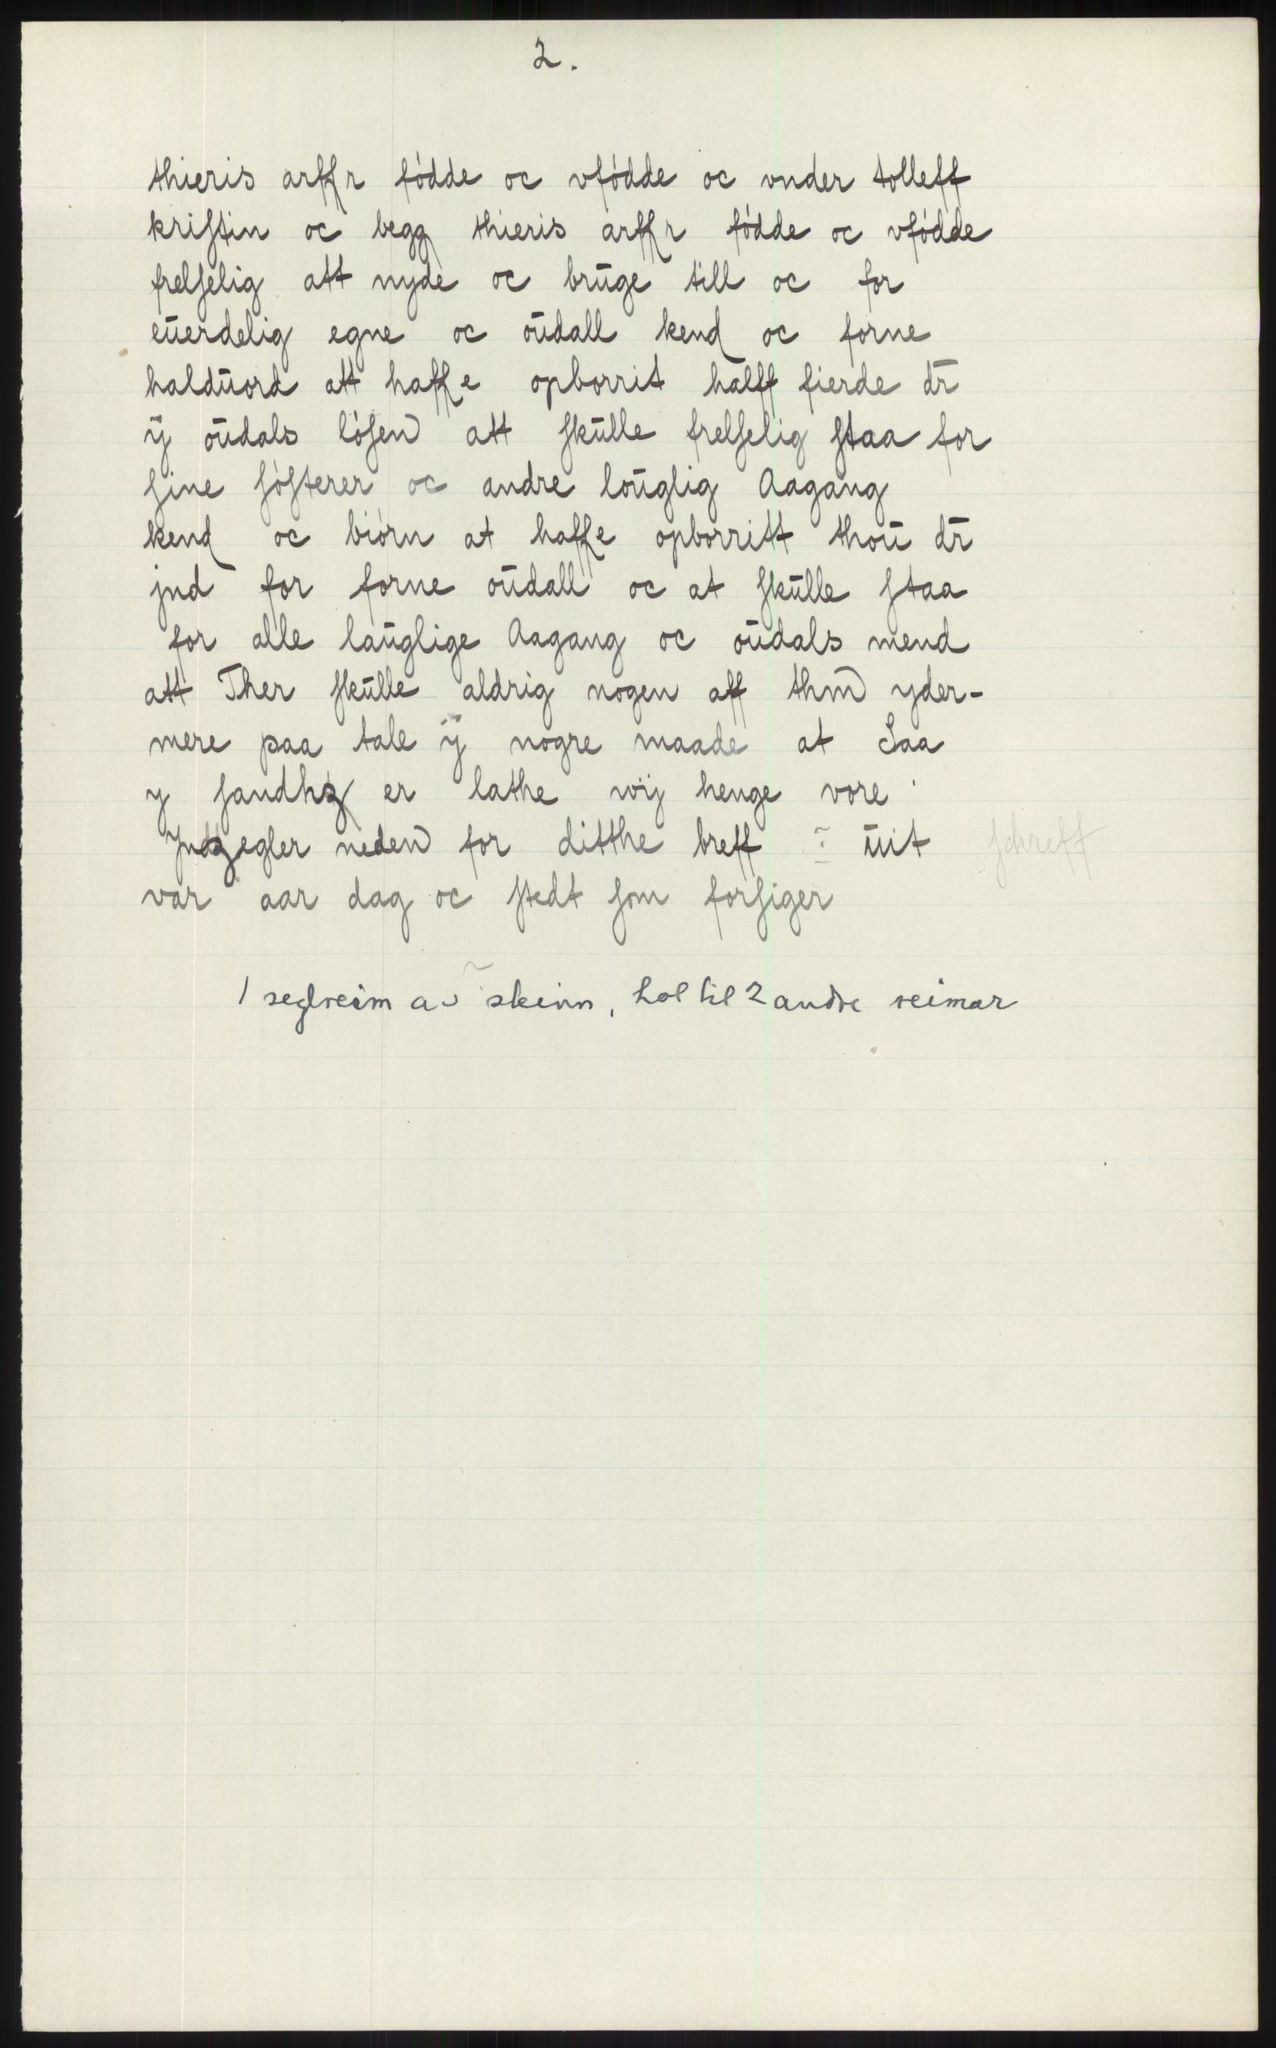 2.
thieris arffr fødde oc vfødde oc vnder tolleff
kristin oc begg thieris arffr fødde oc vfødde
frelselig att nyde oc brūge till oc for
eūerdelig egne oc oūdall kend oc forne
haldūord att haffe opborrit halff fierde dr̄
ÿ oūdals løsen att skūlle frelselig staa for
sine søsterer oc andre loūglig Aagang
kend oc biørn at haffe opborritt thoū dr̄
jnd for forne oūdall oc at skūlle staa
for alle laūglige Aagang oc oūdals mend
att Ther skūlle aldrig nogen aff thm̄ yder-
mere paa tale ÿ nogre maade at Saa
y sandhz er lathe wij henge vore
Jndzegler neden for ditthe breff ūit schreff
var aar dag oc stedt som forsiger
1 seglreim av skinn, hol til 2 andre reimar